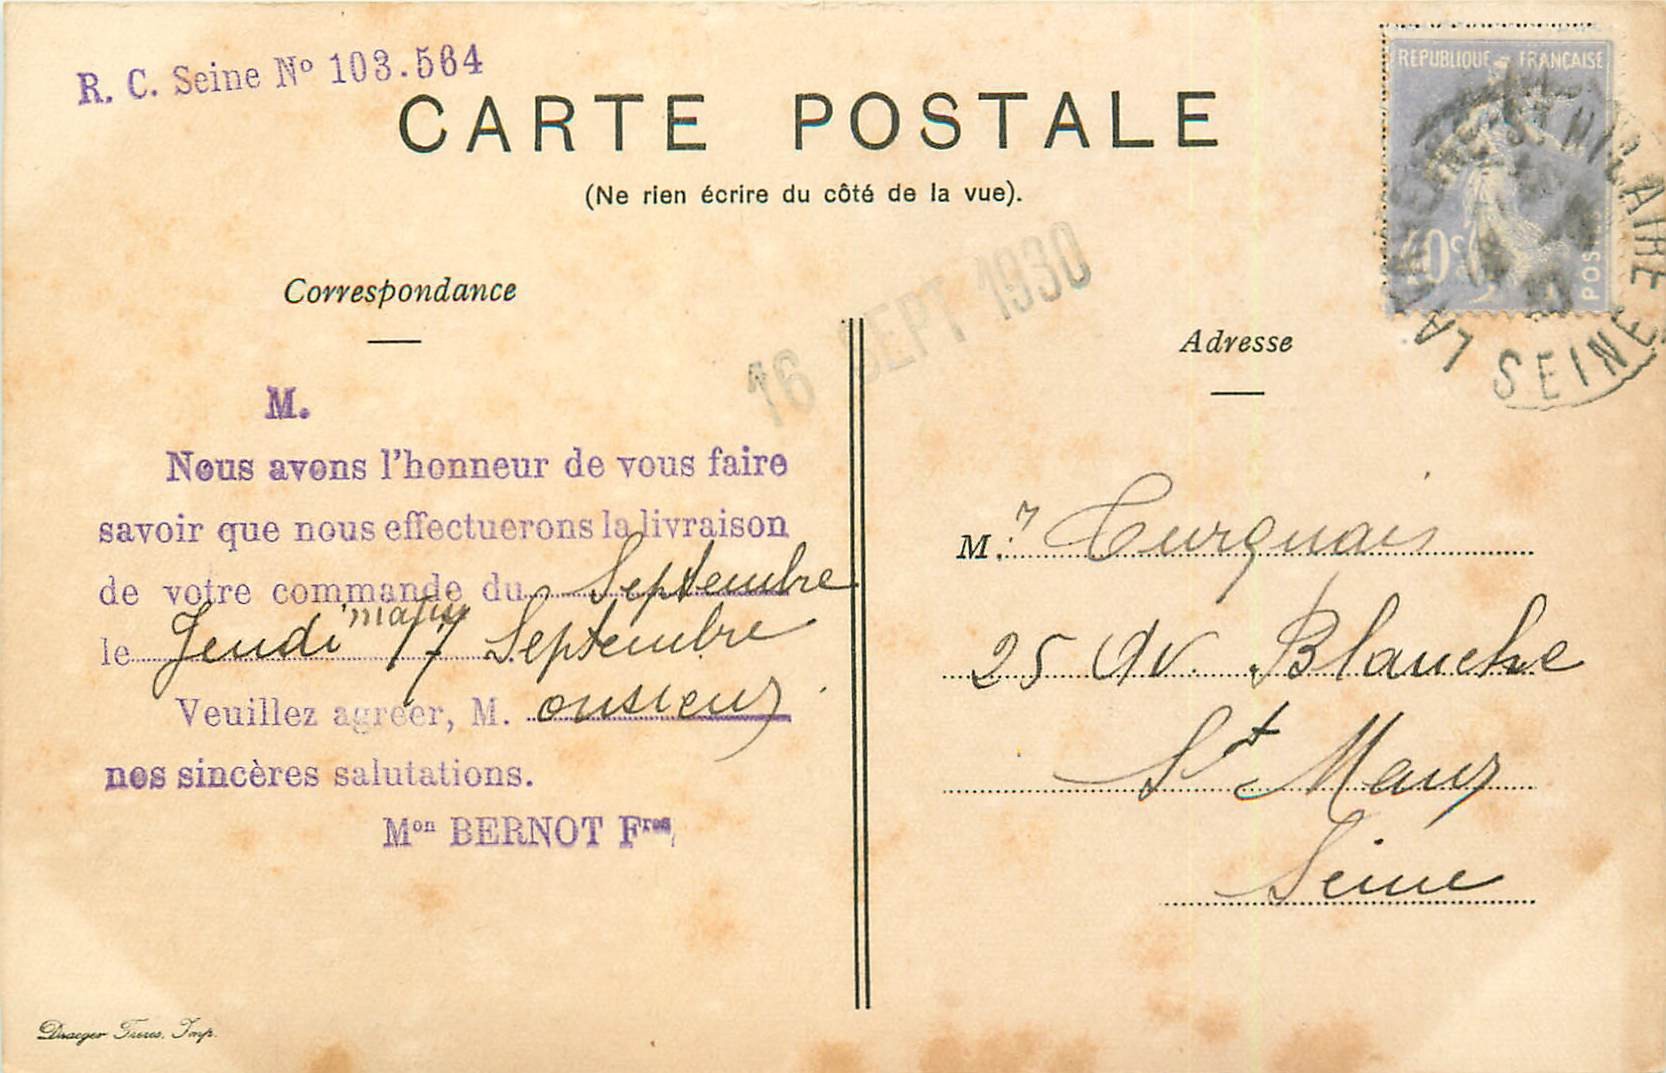 R. C. Seine Nº 103.564
CARTE POSTALE
(Ne rien écrire du côté de la vue).
REPUBLIQUE FRANÇAISE
40c
POSTES
LA VARENNE ST HILAIRE
SEINE
16 SEPT 1930
Correspondance
M.
Nous avons l'honneur de vous faire
savoir que nous effectuerons la livraison
de votre commande du Septembre
le Jeudi matin 17 Septembre
Veuillez agréer, M. onsieur
nos sincères salutations.
Mon BERNOT Fres
Adresse
M. r Turquais
25 Av. Blanche
St Maur
Seine
Draeger Frères, Imp.